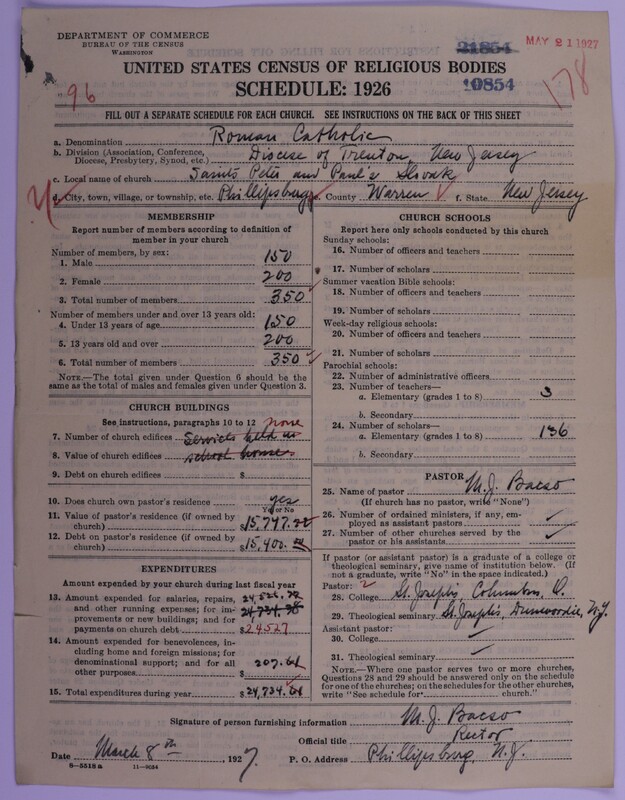 DEPARTMENT OF COMMERCE
BUREAU OF THE CENSUS
WASHINGTON
21854
MAY 21 1927
UNITED STATES CENSUS OF RELIGIOUS BODIES
SCHEDULE: 1926
10854
96
178
FILL OUT A SEPARATE SCHEDULE FOR EACH CHURCH. SEE INSTRUCTIONS ON THE BACK OF THIS SHEET
a. Denomination Roman Catholic
b. Division (Association, Conference, Diocese, Presbytery, Synod, etc.) Diocese of Trenton, New Jersey
c. Local name of church Saints Peter and Paul's Slovak
d. City, town, village, or township, etc. Phillipsburg e. County Warren f. State New Jersey
MEMBERSHIP
Report number of members according to definition of
member in your church
Number of members, by sex:
1. Male 150
2. Female 200
3. Total number of members 350
Number of members under and over 13 years old:
4. Under 13 years of age 150
5. 13 years old and over 200
6. Total number of members 350
NOTE.—The total given under Question 6 should be the
same as the total of males and females given under Question 3.
CHURCH BUILDINGS
See instructions, paragraphs 10 to 12 none
7. Number of church edifices Services held in
8. Value of church edifices school house
9. Debt on church edifices $
10. Does church own pastor's residence yes
Yes or No
11. Value of pastor's residence (if owned by
church) $15,747.
12. Debt on pastor's residence (if owned by
church) $15,400.
EXPENDITURES
Amount expended by your church during last fiscal year
13. Amount expended for salaries, repairs,
and other running expenses; for im-
provements or new buildings; and for
payments on church debt $24527
14. Amount expended for benevolences, in-
cluding home and foreign missions; for
denominational support; and for all
other purposes $ 207.61
15. Total expenditures during year $24,734.61
CHURCH SCHOOLS
Report here only schools conducted by this church
Sunday schools:
16. Number of officers and teachers
17. Number of scholars
Summer vacation Bible schools:
18. Number of officers and teachers
19. Number of scholars
Week-day religious schools:
20. Number of officers and teachers
21. Number of scholars
Parochial schools:
22. Number of administrative officers
23. Number of teachers—
a. Elementary (grades 1 to 8) 3
b. Secondary
24. Number of scholars—
a. Elementary (grades 1 to 8) 136
b. Secondary
PASTOR
25. Name of pastor M. J. Bacso
(If church has no pastor, write "None")
26. Number of ordained ministers, if any, em-
ployed as assistant pastors
27. Number of other churches served by the
pastor or his assistants
If pastor (or assistant pastor) is a graduate of a college or
theological seminary, give name of institution below. (If
not a graduate, write "No" in the space indicated.)
Pastor: 2
28. College St. Joseph's, Columbus, O.
29. Theological seminary St. Joseph's, Dunwoodie, N.Y.
Assistant pastor:
30. College
31. Theological seminary
NOTE.—Where one pastor serves two or more churches,
Questions 28 and 29 should be answered only on the schedule
for one of the churches; on the schedules for the other churches,
write "See schedule for church."
Signature of person furnishing information M. J. Bacso
Official title Rector
Date March 8th, 1927 P. O. Address Phillipsburg, N. J.
8—5518 a 11—9034